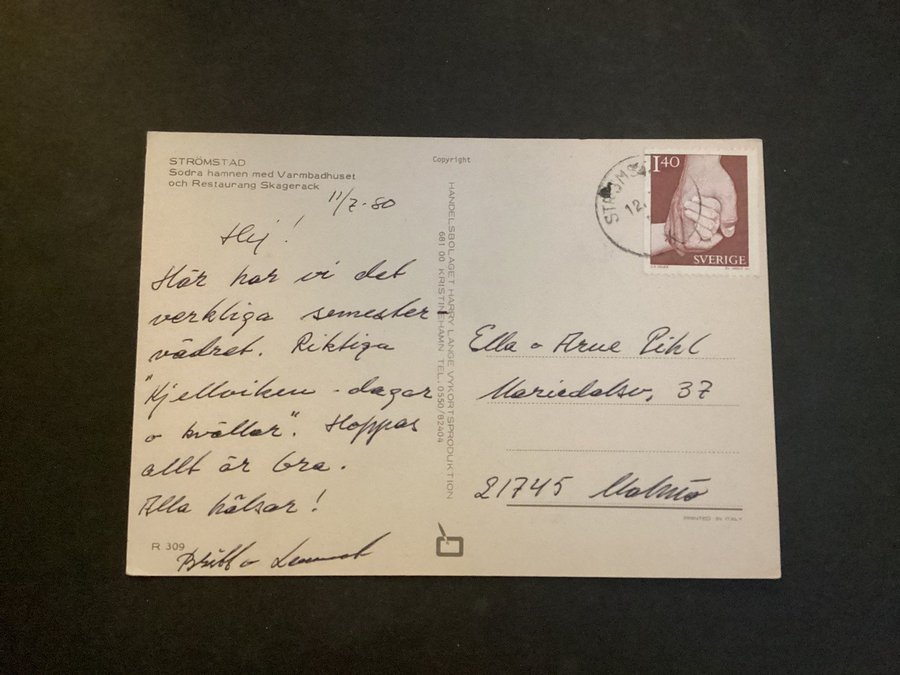 STRÖMSTAD
Södra hamnen med Varmbadhuset
och Restaurang Skagerack
Copyright
11/7-80
Hej!
Här har vi det
verkliga semester-
vädret. Riktiga
"Kjellviken-dagar
o kvällar". Hoppas
allt är bra.
Alla hälsar!
Britt o Lennart
R 309
HANDELSBOLAGET HARRY LANGE VYKORTSPRODUKTION
681 00 KRISTINEHAMN TEL. 0550/82404
STRÖMS
12.
1.40
SVERIGE
Ella o Arne Pihl
Mariedalsv. 37
21745 Malmö
PRINTED IN ITALY